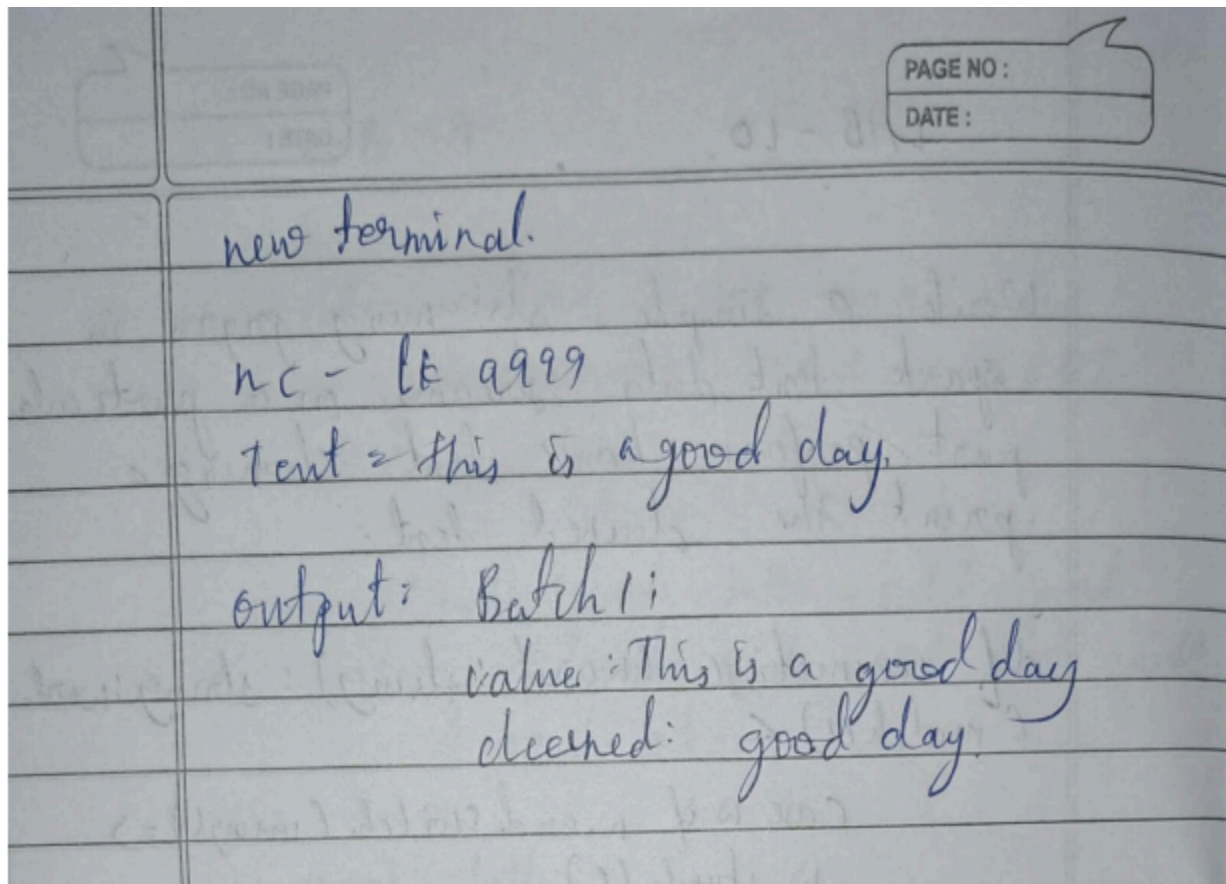 PAGE NO :
DATE :
new terminal.
nc - lk 9999
Text = this is a good day.
output: Batch 1:
value: This is a good day
cleaned: good day.